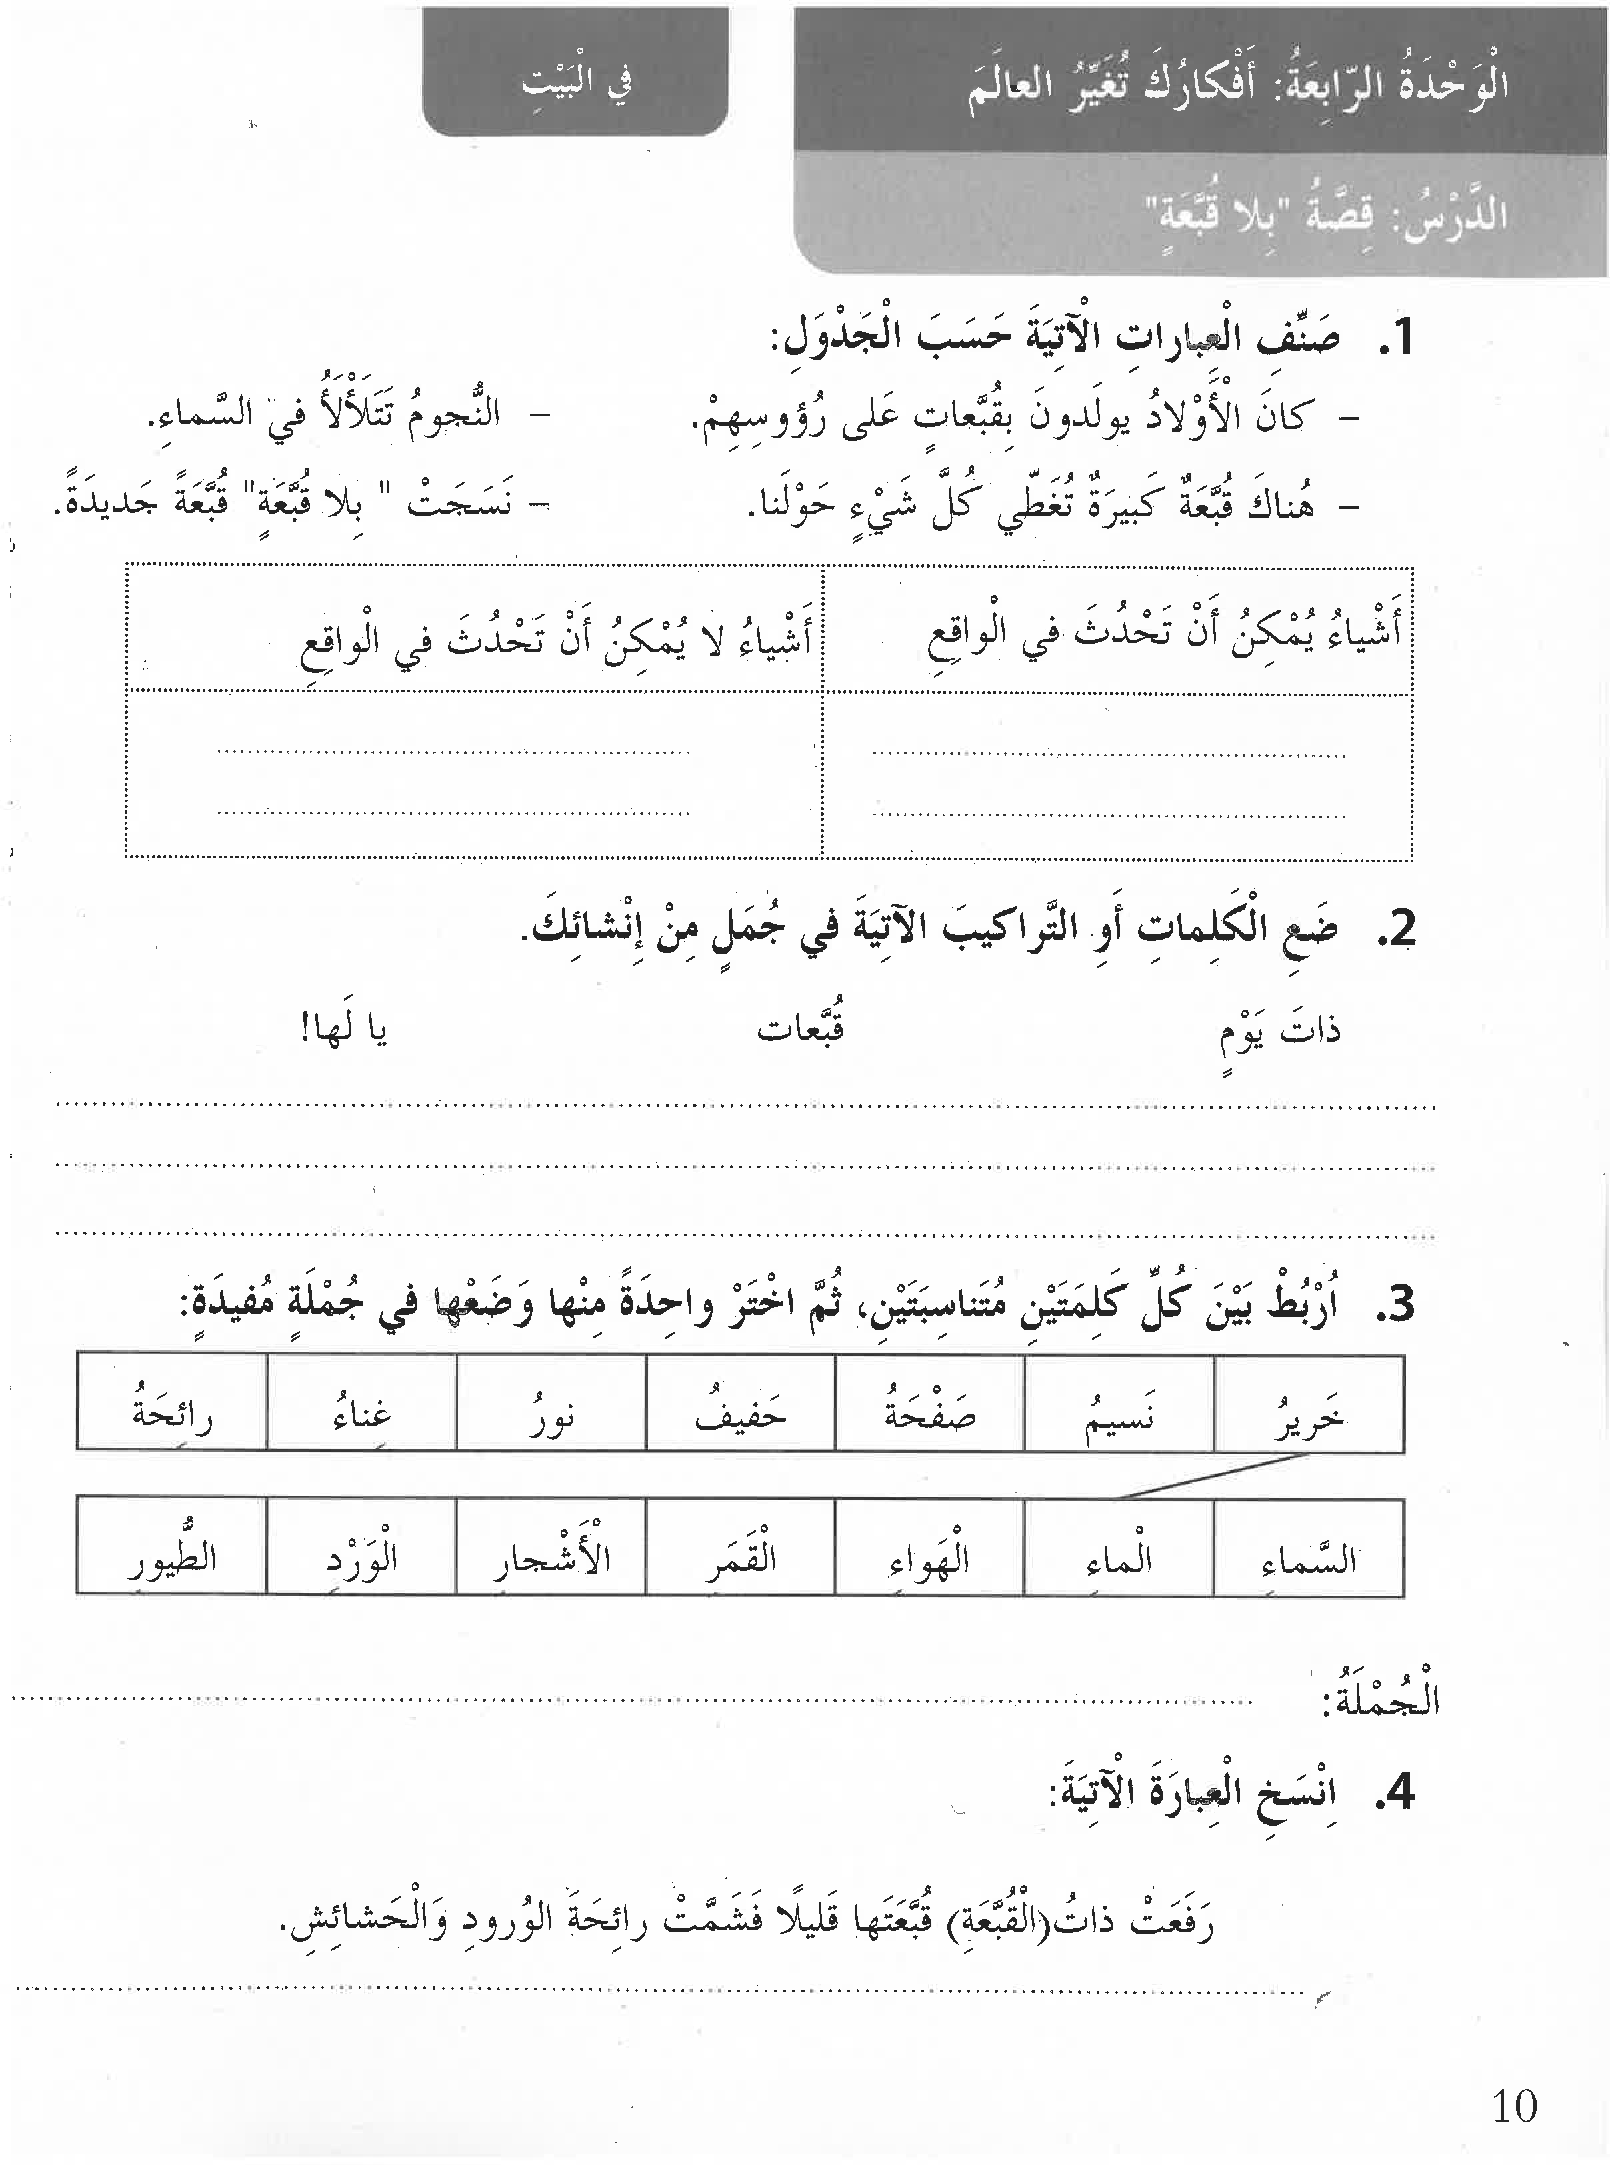 الْوَحْدَةُ الرّابِعَةُ: أَفْكارُكَ تُغَيِّرُ العالَمَ
في الْبَيْتِ
الدَّرْسُ: قِصَّةُ "بِلا قُبَّعَةٍ"
1. صَنِّفِ الْعِباراتِ الْآتِيَةَ حَسَبَ الْجَدْوَلِ:
– كانَ الْأَوْلادُ يولَدونَ بِقُبَّعاتٍ عَلى رُؤوسِهِمْ. – النُّجومُ تَتَلَأْلَأُ في السَّماءِ.
– هُناكَ قُبَّعَةٌ كَبيرَةٌ تُغَطّي كُلَّ شَيْءٍ حَوْلَنا. – نَسَجَتْ " بِلا قُبَّعَةٍ" قُبَّعَةً جَديدَةً.
أَشْياءُ يُمْكِنُ أَنْ تَحْدُثَ في الْواقِعِ أَشْياءُ لا يُمْكِنُ أَنْ تَحْدُثَ في الْواقِعِ
2. ضَعِ الْكَلِماتِ أَوِ التَّراكيبَ الآتِيَةَ في جُمَلٍ مِنْ إِنْشائِكَ.
ذاتَ يَوْمٍ قُبَّعات يا لَها!
3. اُرْبُطْ بَيْنَ كُلِّ كَلِمَتَيْنِ مُتَناسِبَتَيْنِ، ثُمَّ اخْتَرْ واحِدَةً مِنْها وَضَعْها في جُمْلَةٍ مُفيدَةٍ:
خَريرُ نَسيمُ صَفْحَةُ حَفيفُ نورُ غِناءُ رائِحَةُ
السَّماءِ الْماءِ الْهَواءِ الْقَمَرِ الْأَشْجارِ الْوَرْدِ الطُّيورِ
الْجُمْلَةُ:
4. اِنْسَخِ الْعِبارَةَ الْآتِيَةَ:
رَفَعَتْ ذاتُ(الْقُبَّعَةِ) قُبَّعَتَها قَليلًا فَشَمَّتْ رائِحَةَ الوُرودِ وَالْحَشائِشِ.
10